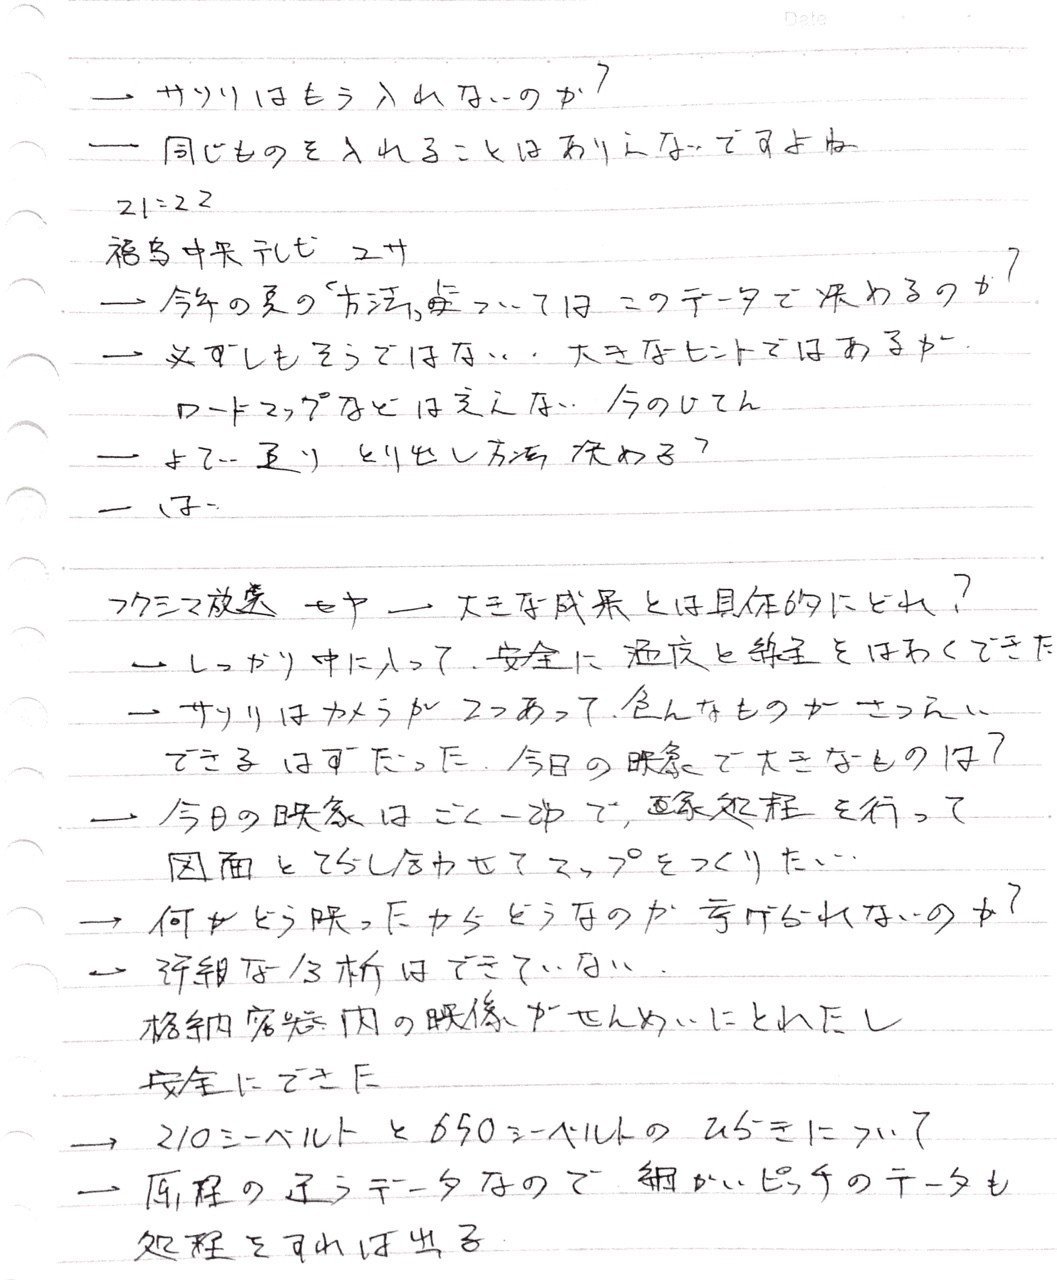 Date
— サソリはもう入れないのか?
— 同じものを入れることはありえないですよね
21:22
福島中央テレビ ユサ
— 今年の夏の「方法」についてはこのデータで決めるのか?
— 必ずしもそうではない. 大きなヒントではあるが.
ロードマップなどは言えない 今のじてん
— よてい通り とり出し方法 決める?
— はい
フクシマ放送 セヤ — 大きな成果とは具体的にどれ?
— しっかり中に入って、安全に温度と線量をはあくできた
— サソリはカメラが2つあって、色んなものがさつえい
できるはずだった. 今日の映象で大きなものは?
— 今日の映象はごく一部で, 画象処理を行って
図面とてらし合わせてマップをつくりたい
→ 何がどう映ったからどうなのか 挙げられないのか?
— 詳細な分析はできていない.
格納容器内の映像がせんめいにとれたし
安全にできた
→ 210シーベルトと650シーベルトのひらきについて
— 原理の違うデータなので 細かいピッチのデータも
処理をすれば出る